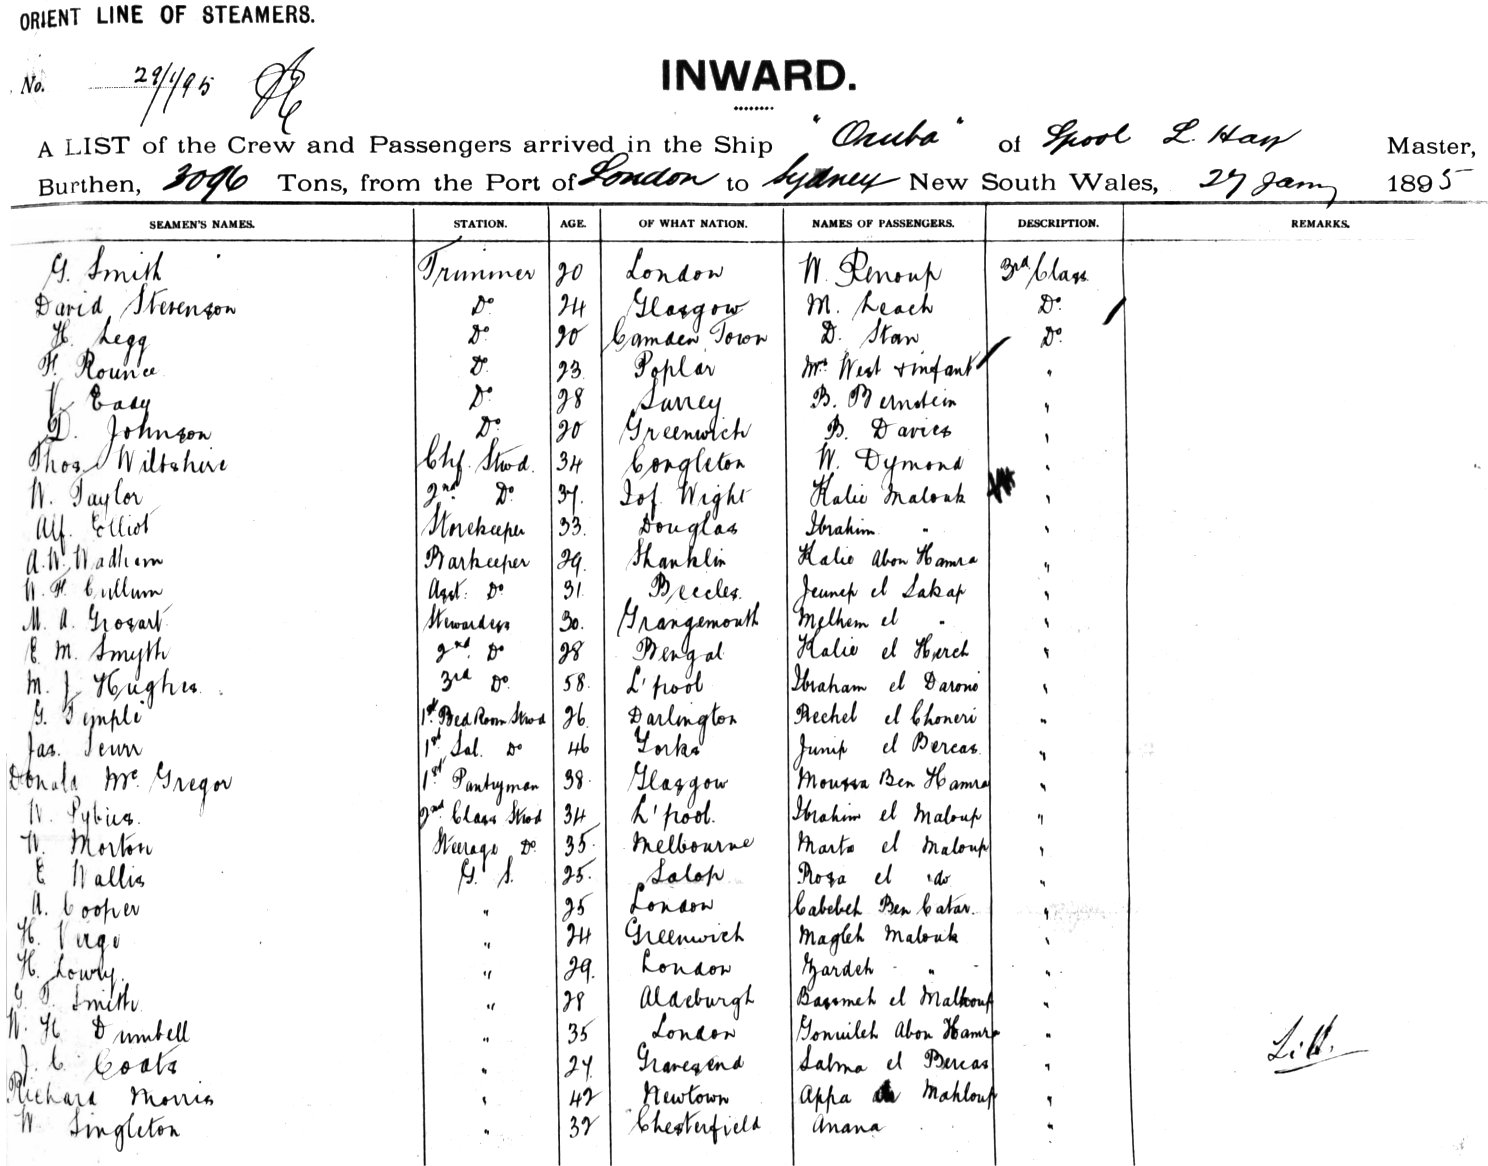 ORIENT LINE OF STEAMERS.
No. 29/1/95
INWARD.
A LIST of the Crew and Passengers arrived in the Ship "Oruba" of Lpool L. Hay Master,
Burthen, 3096 Tons, from the Port of London to Sydney New South Wales, 27 Jany 1895
SEAMEN'S NAMES. STATION. AGE. OF WHAT NATION. NAMES OF PASSENGERS. DESCRIPTION. REMARKS.
G. Smith Trimmer 20 London W. Renouf 3rd Class
David Stevenson Do 24 Glasgow M. Leach Do
H. Legg Do 20 Camden Town D. Starr Do
F. Rounce Do 23 Poplar Mrs West & infant "
Eady Do 28 Surrey B. Bernstein "
D. Johnson Do 20 Greenwich B. Davies "
Thos Wiltshire Chf. Stwd. 34 Congleton W. Dymond "
W. Taylor 2nd Do 37 I of Wight Kalie Malouk "
Alf. Elliot Storekeeper 33 Douglas Ibrahim " "
A. W. Wadham Barkeeper 29 Shanklin Kalie Abon Hamra "
W. F. Cullum Asst. Do 31 Beccles Jeunep el Lakap "
M. A. Grosart Stewardess 30 Grangemouth Melhem el " "
E. M. Smyth 2nd Do 28 Bengal Kalie el Herch "
M. J. Hughes 3rd Do 58 L'pool Ibraham el Daroni "
G. Temple 1st Bed Room Stwd 26 Darlington Rechel el Choneri "
Jas. 1st Sal. Do 46 Yorks Junip el Bercas "
Donald McGregor 1st Pantryman 38 Glasgow Moussa Ben Hamra "
W. Pybus 2nd Class Stwd 34 L'pool Ibrahim el Maloup "
W. Morton Steerage Do 35 Melbourne Marta el Maloup "
E Wallis G. S. 25 Salop Rosa el do "
A. Cooper " 25 London Cabebeh Ben Catar "
H. Verge " 24 Greenwich Magleh Malouk "
H. Lowry " 29 London Zardeh " "
G. T. Smith " 28 Aldeburgh Bassmeh el Malhouf "
W. H. Dumbell " 35 London Gonuileh Abon Hamra "
J. C. Coats " 27 Gravesend Salma el Bercas "
Richard Morris " 42 Newtown Appa Mahlouf "
W Singleton " 32 Chesterfield Anana "